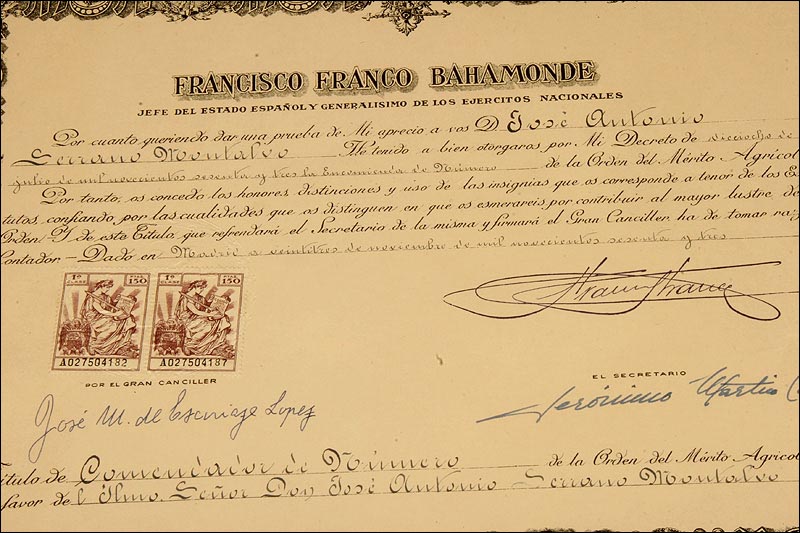 FRANCISCO FRANCO BAHAMONDE
JEFE DEL ESTADO ESPAÑOL Y GENERALISIMO DE LOS EJERCITOS NACIONALES
Por cuanto queriendo dar una prueba de Mi aprecio a vos D. José Antonio
Serrano Montalvo He tenido a bien otorgaros por Mi Decreto de dieciocho de
julio de mil novecientos sesenta y tres la Encomienda de Número de la Orden del Mérito Agrícol
Por tanto, os concedo los honores, distinciones y uso de las insignias que os corresponde a tenor de los Es
tutos, confiando, por las cualidades que os distinguen en que os esmerareis por contribuir al mayor lustre de
Orden. Y de este Título, que refrendará el Secretario de la misma y firmará el Gran Canciller, ha de tomar raz
Contador.- Dado en Madrid a veintitres de noviembre de mil novecientos sesenta y tres
1ª CLASE PTAS 150
A027504182
1ª CLASE PTAS 150
A027504187
POR EL GRAN CANCILLER
EL SECRETARIO
José M. de Escoriaza Lopez
Jerónimo Martin
Título de Comendador de Número de la Orden del Mérito Agrícol
favor del Ilmo. Señor Don José Antonio Serrano Montalvo